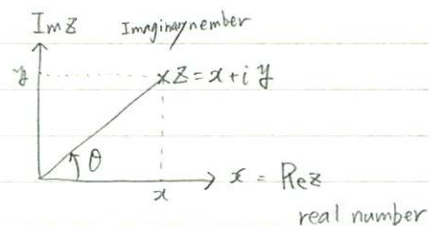 Im Z
Imaginary nember
y
x Z = x + i y
θ
x
x = Re z
real number